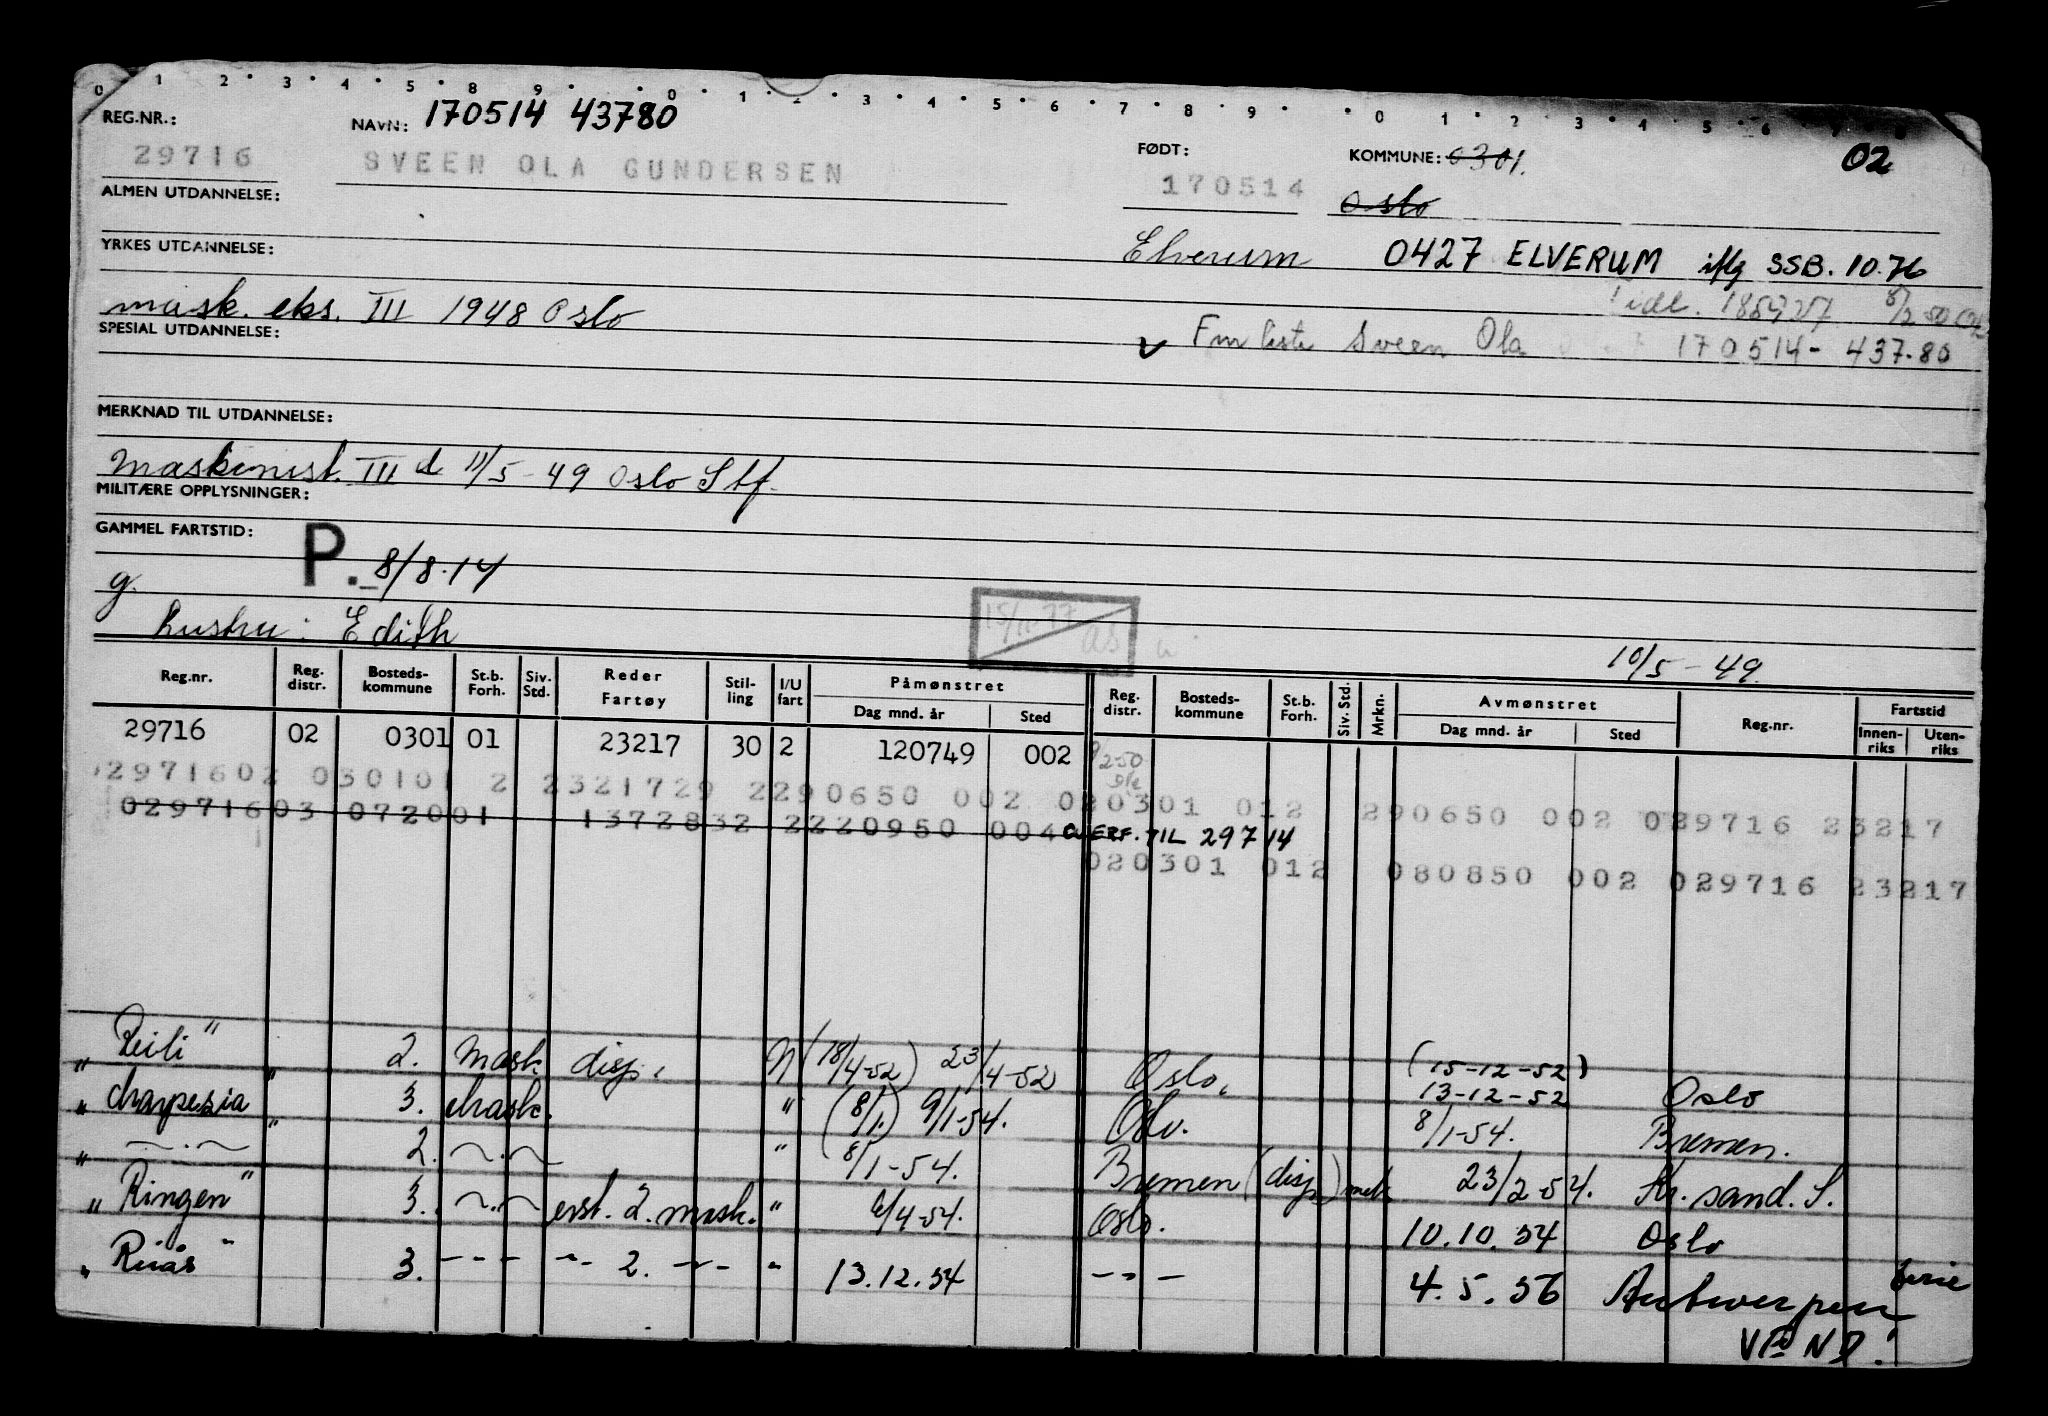 0 1 2 3 4 5 8 9 0 1 2 3 4 5 6 7 8 9 0 1 2 3 4 5 6
REG.NR.: NAVN: 170514 43780 FØDT: KOMMUNE: 0301. 02
29716 SVEEN OLA GUNDERSEN 170514 Oslo
ALMEN UTDANNELSE:
YRKES UTDANNELSE: Elverum 0427 ELVERUM iflg SSB. 10.76
mask. eks. III 1948 Oslo
SPESIAL UTDANNELSE: Sveen Ola 170514- 437.80
MERKNAD TIL UTDANNELSE:
Maskinist. III d 11/5-49 Oslo Stf.
MILITÆRE OPPLYSNINGER:
GAMMEL FARTSTID:
P. 8/8.14
g.
hustru: Edith 15/11-77 AS
10/5-49.
Reg.nr. Reg. distr. Bosteds-kommune St.b. Forh. Siv. Std. Reder Fartøy Stil-ling I/U fart Påmønstret Dag mnd. år Sted Reg. distr. Bosteds-kommune St.b. Forh. Siv. Std. Mrkn. Avmønstret Dag mnd. år Sted Reg.nr. Fartstid Innen-riks Uten-riks
29716 02 0301 01 23217 30 2 120749 002
02971602 030101 2 2321729 2290650 002 020301 012 290650 002 029716 23217
02971603 072001 1372832 2220950 004 OVERF. TIL 29714
020301 012 080850 002 029716 23217
2. Mask disp. N (18/4-52) 23/4-52 Oslo. (15-12-52)
13-12-52 Oslo
3. Mask. " (8/1.) 9/1-54. 8/1-54. Bremen.
" 2. " 8/1-54. Bremen (disp) 23/2-54. Kr.sand. S.
"Ringen" 3. erst. 2. mask. " 6/4-54. Oslo. 10.10.54 Oslo
3. --- 2. --- " 13.12.54 --- 4.5.56 Antwerpen
VEND!